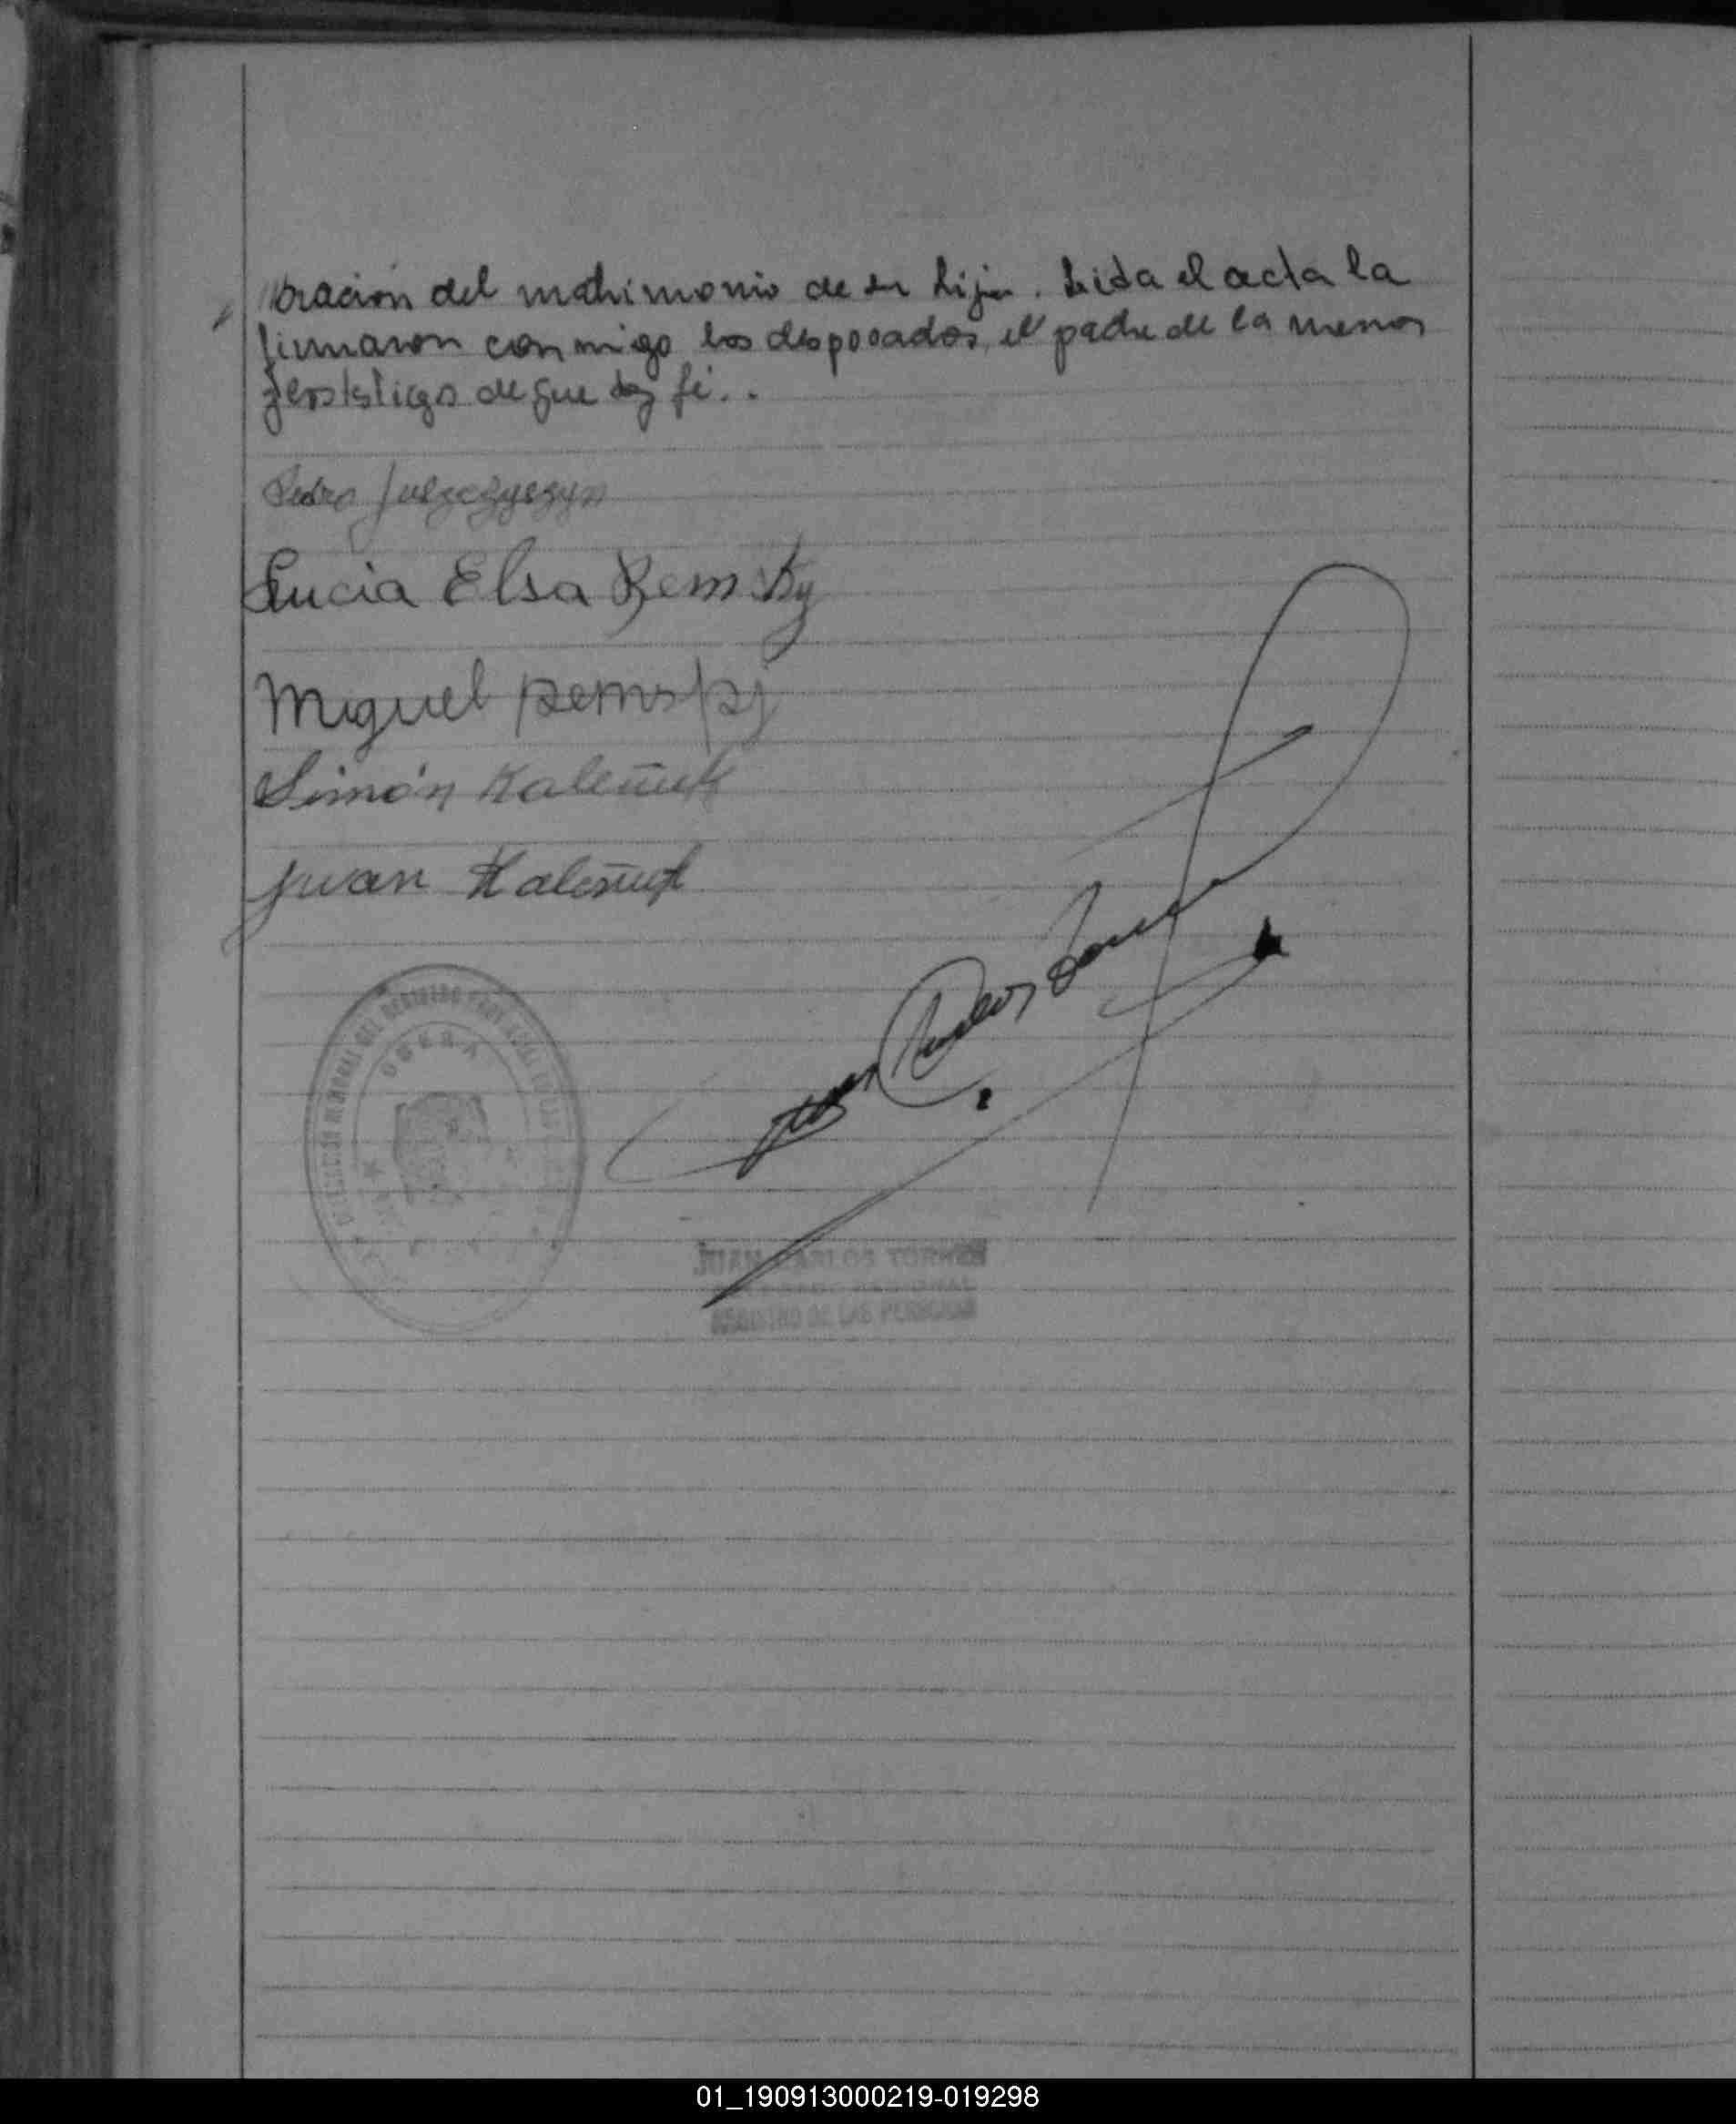 bración del matrimonio de su hija. Leida el acta la
firmaron conmigo los desposados, el padre de la menor
y los testigos de que doy fé..
Pedro Juszczyszyn
Lucia Elsa Remsky
Miguel Remski
Simón Kaleñuk
Juan Kaleñuk
Juan Carlos Torres
OBERA
JUAN CARLOS TORRES
REGIONAL
REGISTRO DE LAS PERSONAS
01_190913000219-019298